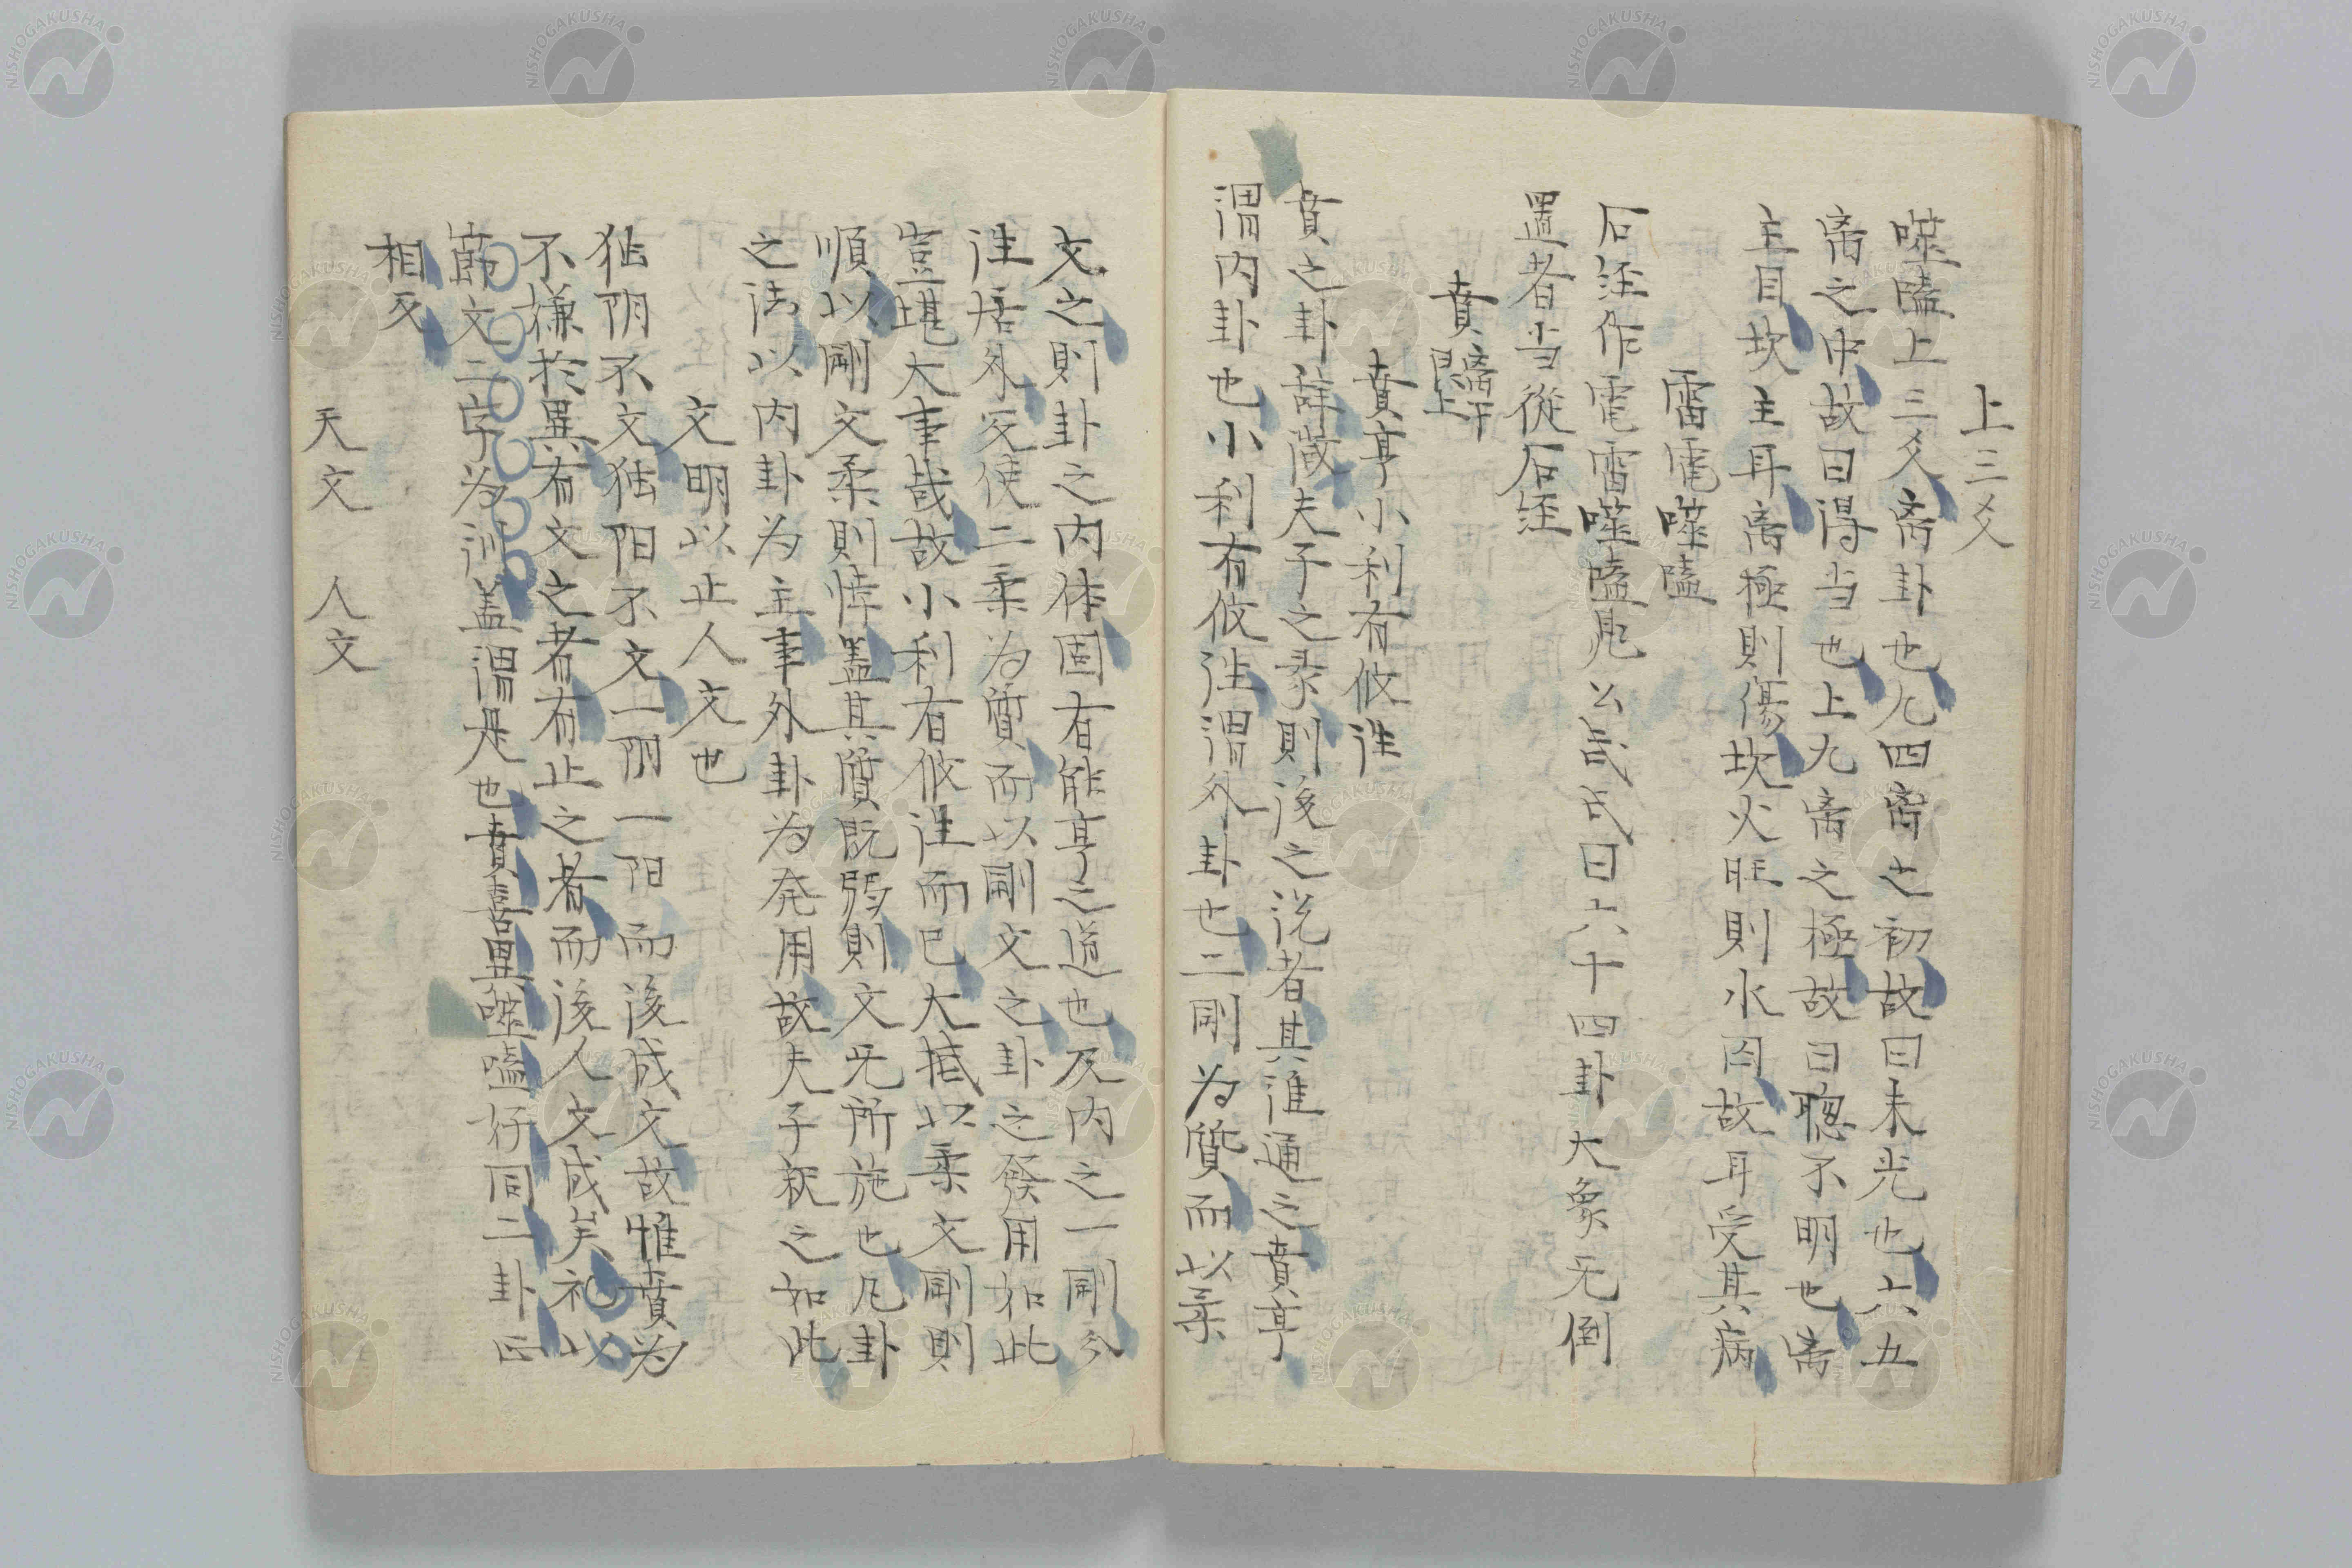 上三爻
噬嗑上三爻离卦也九四离之初故曰未光也六五
离之中故曰得当也上九离之極故曰聰不明也离
主目坎主耳离極則傷坎火旺則水囚故耳受其病
雷電噬嗑
石经作電雷噬嗑晁公武氏曰六十四卦大象无倒
置者当從石经
賁 离下艮上
賁亨小利有攸往
賁之卦辞微夫子之彖則後之说者其谁通之賁亨
谓内卦也小利有攸往谓外卦也二剛为質而以柔
文之則卦之内体固有能亨之道也反内之一剛今
往居外反使二柔为質而以剛文之卦之發用如此
豈堪大事哉故小利有攸往而已大抵以柔文剛則
順以剛文柔則悖盖其質既弱則文无所施也凡卦
之法以内卦为主事外卦为発用故夫子釈之如此
文明以止人文也
独阴不文独阳不文一阴一阳而後成文故惟賁为
不嫌於異有文之者有止之者而後人文成矣礼以
節文二字为训盖謂是也賁喜異噬嗑好同二卦正
相反
天文 人文
NISHOGAKUSHA